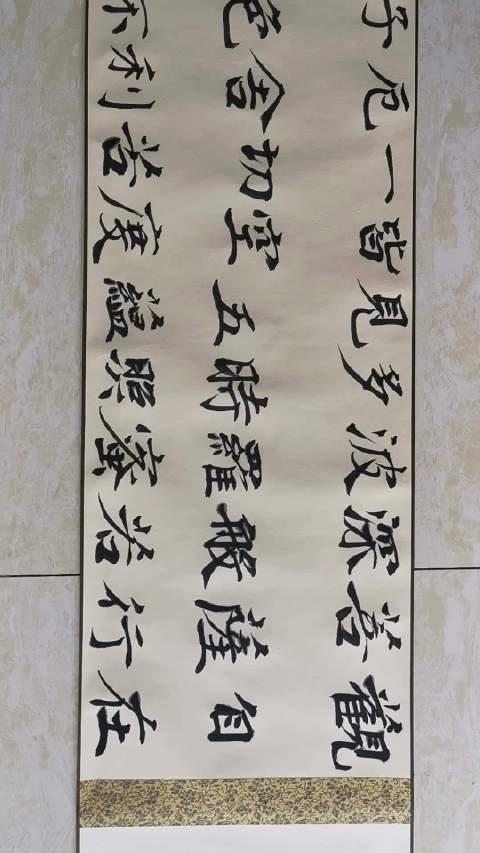 觀自在
菩薩行
深般若
波羅蜜
多時照
見五蘊
皆空度
一切苦
厄舍利
子色不